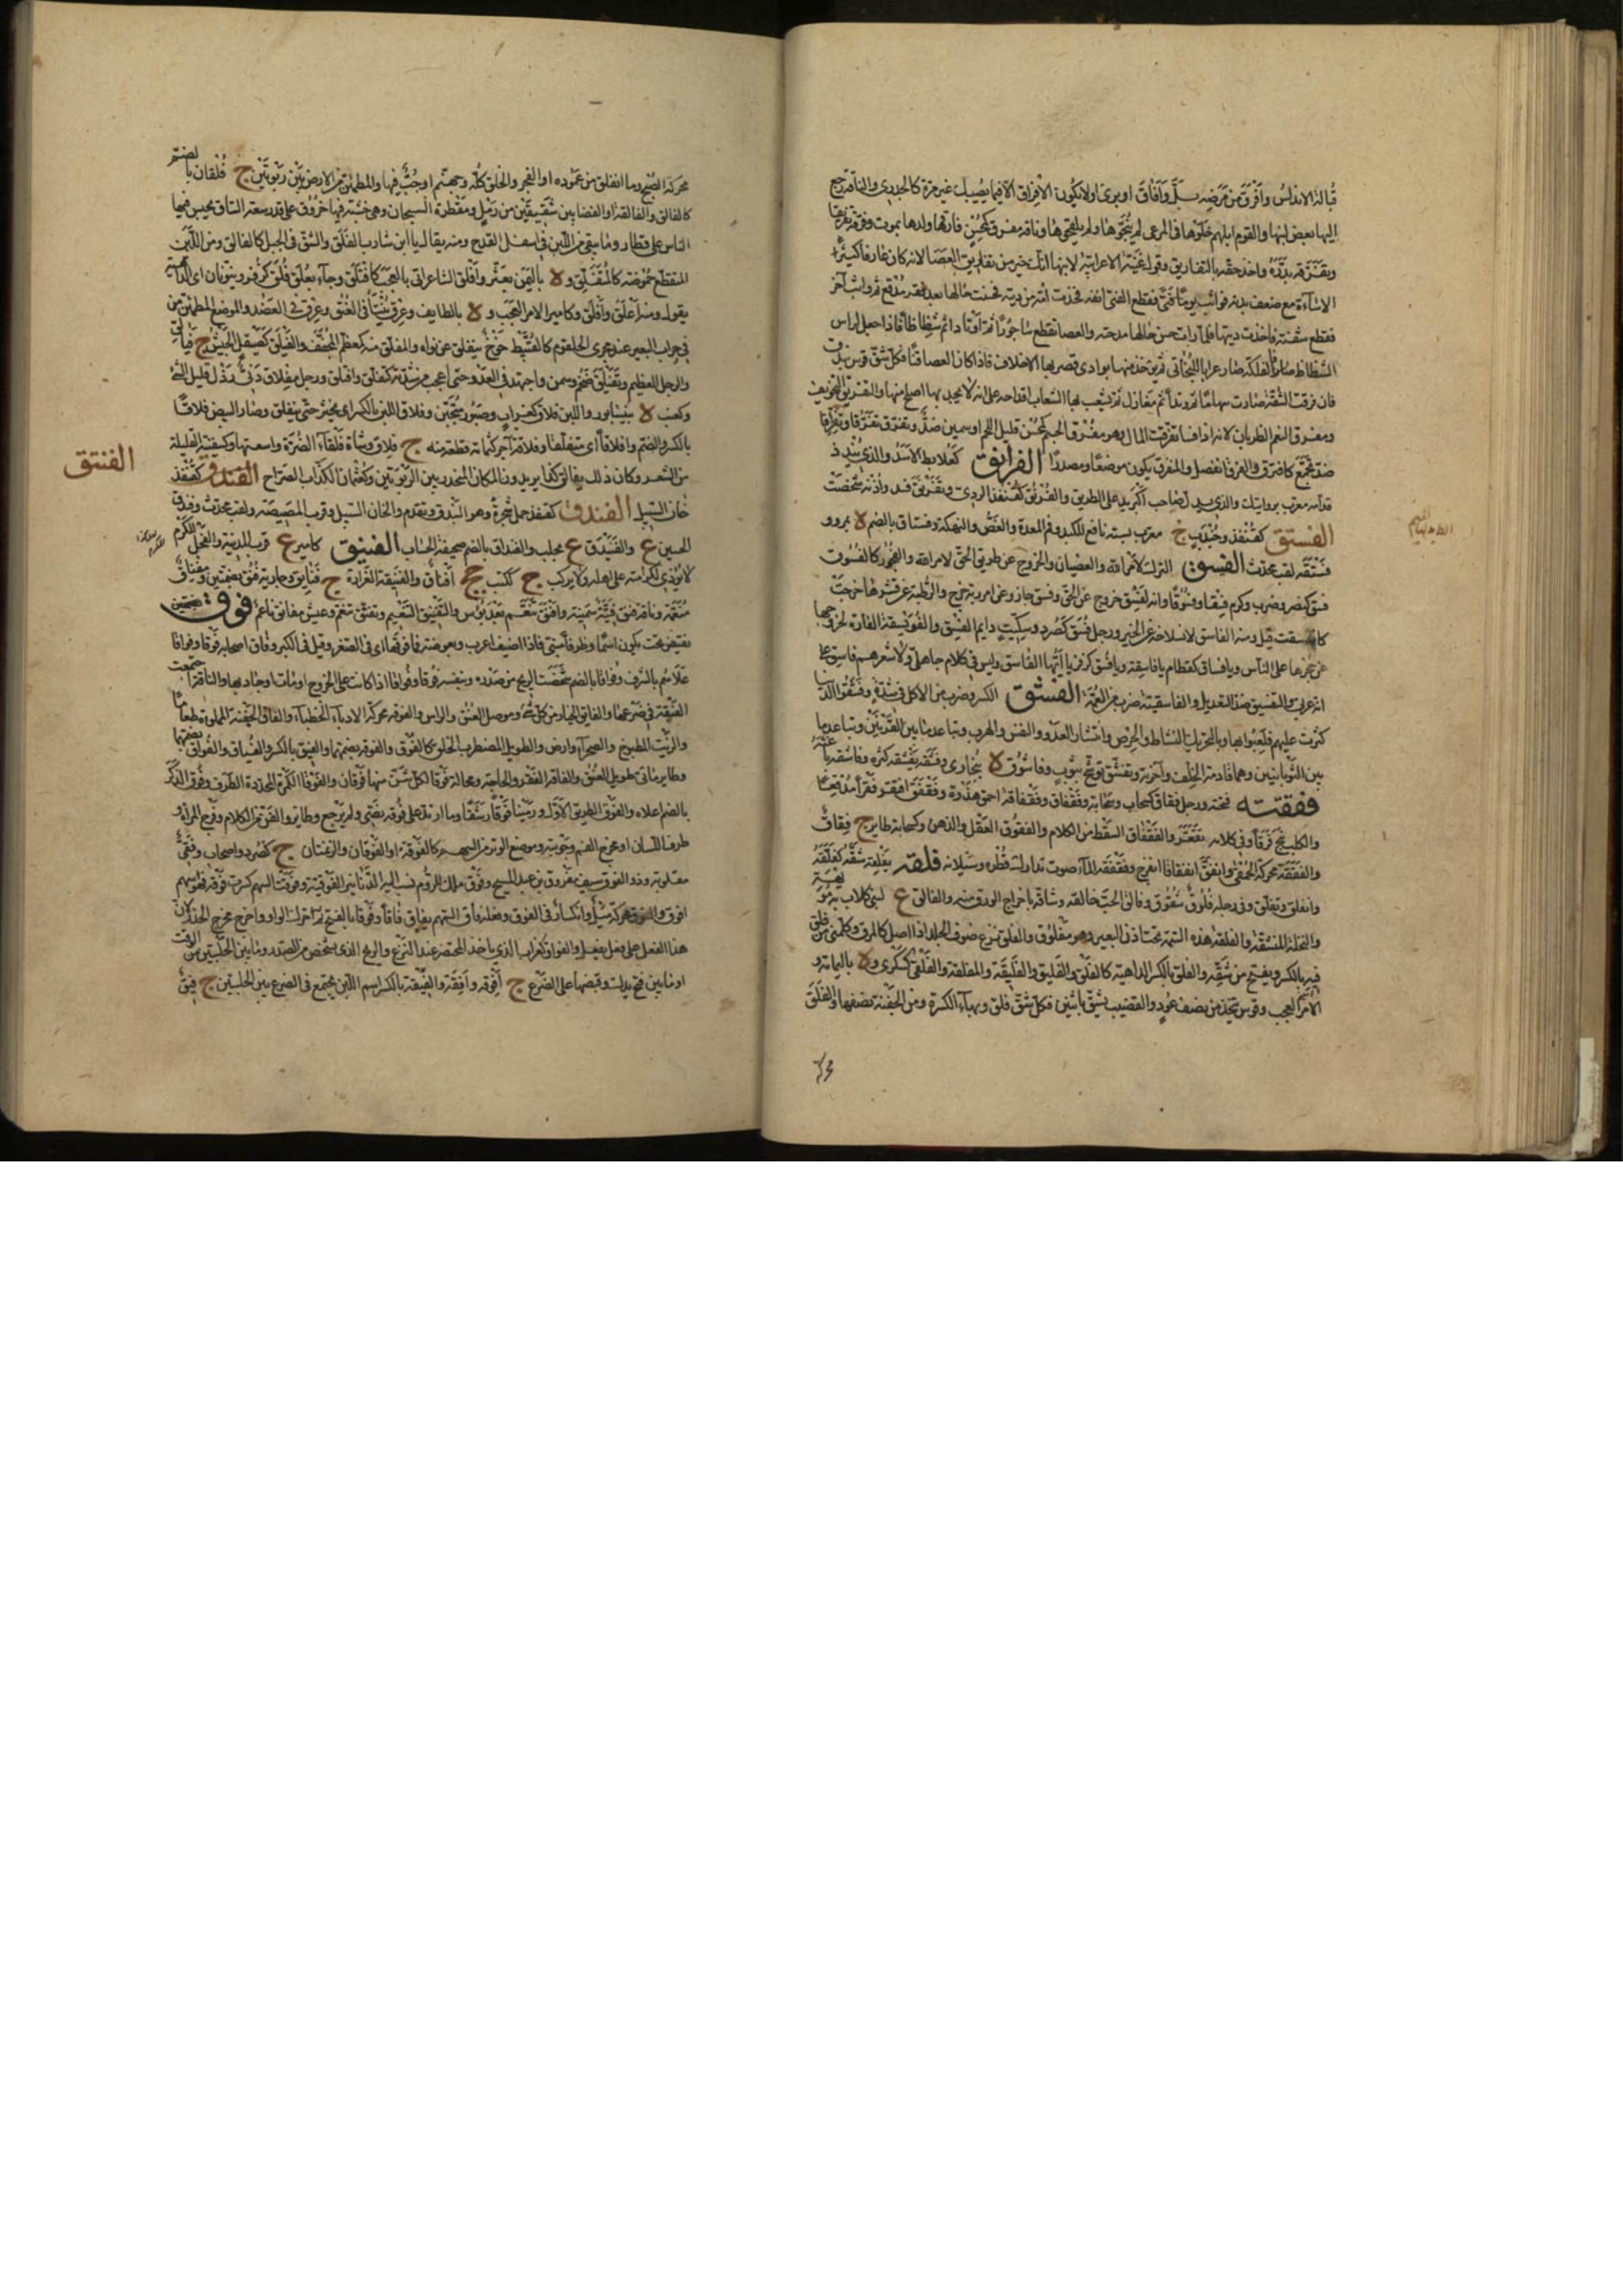 قبالة الاندلس وأفرق من مرضه بل وأفاق او برئ اولا يكون الافراق الا فيما يصيبك غير مرة كالجدري والناقة رجع
اليها بعض لبنها والقوم ابلهم خلوها في المرعى لم ينتجوها ولم يلقحوها وناقة مفرق كمحسن فارقها ولدها بموت وفرقه تفريقا
وتفرقة بدده واخذ حقه بالتفاريق وقول غنية الاعرابية لابنها انك خير من تفاريق العصا لانه كان عارما كثير
الاساءة مع ضعف بدنه فواثب يوما فتى فقطع الفتى انفه فاخذت امه دية فحسنت حالها بعد فقر مدقع ثم واثب آخر
فقطع شفته فاخذت ديتها فلما رات حسن حالها مدحته والعصا تقطع ساجورا ثم اوتادا ثم شظاظا فاذا جعل لراس
الشظاظ كالفلكة صار عرانا للبخاتي ثم يؤخذ منها توادي تصر بها الاخلاف فاذا كان العصا قنا فكل شق قوس بندق
فان فرقت الشقة صارت سهاما ثم مغازل ثم يشعب بها الشعاب اقداحه على انه لا يجد لها اصلح منها والتفريق التخويف
ومفرق النعم الظربان لانه اذا فسا تفرقت المال وهو مفرق الجسم كمحسن قليل اللحم او سمين ضد وتفرق تفرقا وتفراقا
ضد تجمع كافترق وانفرق انفصل والمنفرق يكون موضعا ومصدرا الفرانق كعلابط الاسد والذي ينذر
قدامه معرب بروانك والذي يدل صاحب البريد على الطريق والفرنق كقنفذ الردئ وتفرنق فسد واذنه شخصت
الفستق كقنفذ وجندب ج معرب بسته نافع للكبد وفم المعدة والمغص والنكهة وفستاق بالضم لا بمرو
فستقة لقب محدث الفسق الترك لامر الله والعصيان والخروج عن طريق الحق لامر الله والفجور كالفسوق
فسق كنصر وضرب وكرم فسقا وفسوقا وانه لفسق خروج عن الحق وفسق جار وعن امر ربه خرج والرطبة عن قشرها خرجت
كانفسقت قيل ومنه الفاسق لانسلاخه عن الخير ورجل فسق كصرد وسكيت دائم الفسق والفويسقة الفارة لخروجها
عن جحرها على الناس ويا فساق كقطام يا فاسقة ويا فسق كزفر يا ايها الفاسق وليس في كلام جاهلي ولا شعرهم فاسق على
انه عربي والتفسيق ضد التعديل والفاسقية ضرب من العمة الفشق الكسر وضرب من الاكل في شدة وفشقوا الدنيا
كثرت عليهم فلعبوا بها وبالتحريك النشاط والحرص وانتشار العدو والنفس والهرب وتباعد ما بين القرنين وتباعد ما
بين التوأبانيين وهما قادمة الخلف وآخرته وتفشق توشح بثوب وفاشوق لا ببخارى وفشقه يفشقه كسره وفاشقه باغته
فقفقته فختة ورجل فقاق كسحاب وسحابة وفقفاق وفقفاقة احمق هذرة وفقفق افتقر فقرا مدقعا
والكلب نبح فرقا وفي كلامه تقعر والفقفاق السقط من الكلام والفقفوق العقل والذهن وكسحابة طاير ج فقاق
والفققة محركة الحمقى وانفق انفقاقا انفرج وفقفقة الماء صوت تدارك قطره وسيلانه فلقه يفلقه شقه كفلقه
وانفلق وتفلق وفي رجله فلوق شقوق وفالق الحب خالقه وشاقه باخراج الورق منه والفالق ع لبني كلاب به مويهة
والنخلة المنشقة والفلقة هذه السمة تحت اذن البعير وهو مفلوق والفلق نزع صوف الجلد اذا اصل كالمرق وكلمني من فلق
فيه بالكسر ويفتح من شقه والفلق بالكسر الداهية كالفلقة والفليق والفليقة والمفلقة والفلقى كسكرى ولا باليمامة و
الامر العجب وقوس تتخذ من نصف عود والقضيب يشق باثنين فكل شق فلق وبهاء الكسرة ومن الجفنة نصفها والفلق
الفستق
محركة الصبح وما انفلق من عموده او الفجر والخلق كله وجهنم او جب فيها والمطمئن من الارض بين ربوتين ج فلقان بالضم
كالفالق والفالقة والفضا بين شقيقتين من رمل ومقطرة السجان وهي خشبة فيها خروق على قدر سعة الساق يحبس فيها
الناس على قطار وما يبقى من اللبن في اسفل القدح ومنه يقال يا ابن شارب الفلق والشق في الجبل كالفالق ومن اللبن
المتقطع حموضة كالمتفلق ولا باليمن بعثر وافلق الشاعر اتى بالعجب كافتلق وجاء بعلق فلق كزفر وينونان اي الداهية
يقول منه اعلق وافلق وكامير الامر العجب ولا بالطايف وعرق ينتأ في العنق وعرق في العضد والموضع المطمئن من
في جران البعير عند مجرى الحلقوم كالقبيط خوخ يتفلق عن نواه والمفلق منه كمعظم المجفف والفيلق كصيقل الجيش ج فيالق
والرجل العظيم وتفيلق ضخم وسمن واجتهد في العدو حتى اعجب من شدته كتفلق وافتلق ورجل مفلاق دنئ رذل قليل الشئ
وكعنب لا بنيسابور واللبن فلاق كغراب وصبور متجبن وفلاق اللبن بالكسر ان يخثر حتى يتفلق وصار البيض فلاقا
بالكسر والضم وافلاقا اي متفلقا وفلاقة آجر كثمامة قطعة منه ج فلاق وشاة فلقاء الضرة واسعتها وكسفينة القليلة
من الشعر وكان ذلك بفالق كذا يريدون المكان المنحدر بين الربوتين وكعثمان الكذاب الصراح الفندق كقنفذ
خان السبيل الفندق كقنفذ حمل شجرة وهو البندق وتقدم والخان السبيل وقرب المصيصة ولقب محدث وفندق
الحسين ع والفنيدق ع بحلب والفنداق بالضم صحيفة الحساب الفنيق كامير ع قرب المدينة والفحل المكرم
لا يؤذى لكرامته على اهله ولا يركب ج ككتب جج افناق والفنيقة الغرارة ج فنايق وجارية فنق بضمتين ومفناق
منعمة وناقة فنق فتية سمينة وافنق تنعم بعد بؤس والتفنيق التنعيم وتفنق تنعم وعيش مفانق ناعم فوق
نقيض تحت يكون اسما وظرفا مبني فاذا اضيف اعرب وبعوضة فما فوقها اي في الصغر وقيل في الكبر وفاق اصحابه فوقا وفواقا
علاهم بالشرف وفواقا بالضم شخصت الريح من صدره وبنفسه فوقا وفواقا اذا كانت على الخروج او مات او جاد بها والناقة اجتمعت
الفيقة في ضرعها والفايق الخيار من كل شئ وموصل العنق والراس والفوقة محركة الادباء الخطباء والفاق الجفنة المملوة طعاما
والزيت المطبوخ والصحراء وارض والطويل المضطرب الخلق كالفوق والفوقة بضمهما والفيق بالكسر والفياق والفواق بضمهما
وطاير مائي طويل العنق والفاقة الفقر والحاجة ومحالة فوقا لكل سن منها فوقان والفوقا الكمرة المحددة الطرف وفوق الذكر
بالضم اعلاه والفوق الطريق الاول ورمينا فوقا رشقا وما ارتد على فوقه مضى ولم يرجع وطاير والفن من الكلام وفرج المراة و
طرف اللسان او مخرج الفم وجوبته وموضع الوتر من السهم كالفوقة او الفوقان الزنمتان ج كصرد واصحاب وفقى
مقلوبة وذو الفوق سيف مفروق بن عبد المسيح وفوق ملك للروم نسب اليه الدنانير الفوقية وفقت السهم كسرت فوقه فهو سهم
افوق والفوق محركة ميل وانكسار في الفوق وفعله فاق السهم يفاق فاقا وفوقا بالفتح ثم حرك الواو واخرج مخرج الحذر لان
هذا الفعل على فعل يفعل والفواق كغراب الذي ياخذ المحتضر عند النزع والريح الذي يشخص من الصدر وما بين الحلبتين من الوقت
او ما بين فتح يدك وقبضها على الضرع ج افوقة وآفقة والفيقة بالكسر اسم اللبن يجتمع في الضرع بين الحلبتين ج فيق
الفنتق